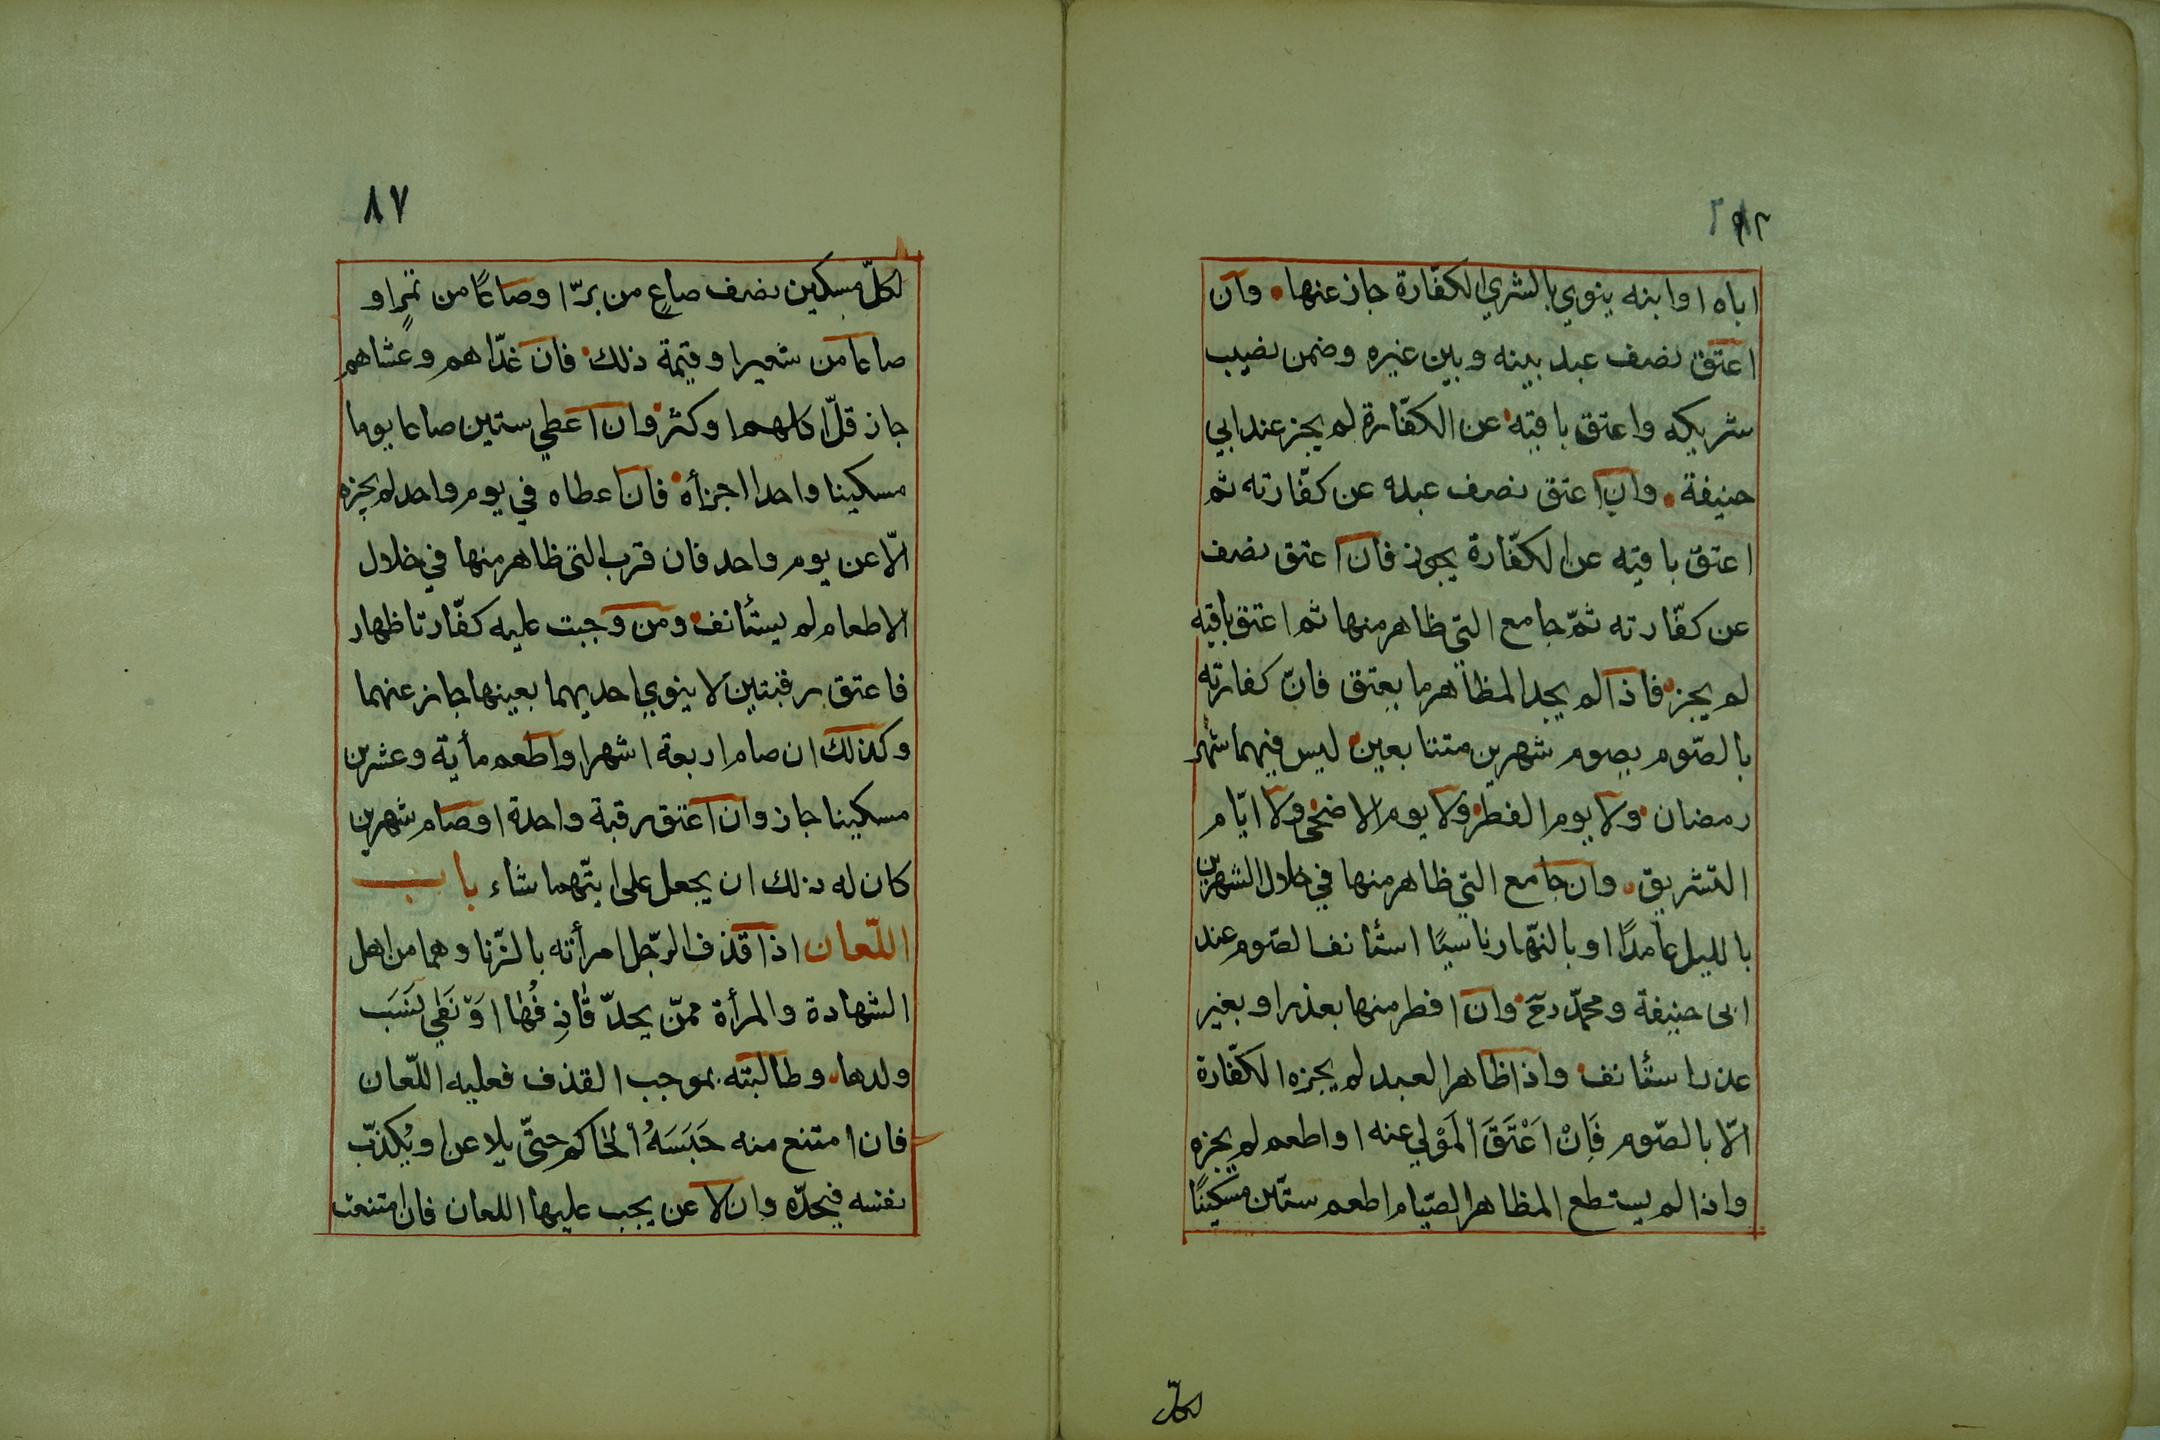 اباه اوابنه ينوي بالشري الكفّارة جاز عنها وان
اعتق نصف عبد بينه وبين غيره وضمن نصيب
شريكه واعتق باقيه عن الكفّارة لم يجز عند ابي
حنيفة وان اعتق نصف عبده عن كفّارته ثم
اعتق باقيه عن الكفّارة يجوز فان اعتق نصف
عن كفّارته ثمّ جامع التي ظاهر منها ثم اعتق باقيه
لم يجز فاذا لم يجد المظاهر ما يعتق فانّ كفارته
بالصّوم يصوم شهرين متتابعين ليس فيهما شهر
رمضان ولا يوم الفطر ولا يوم الاضحٰى ولا ايّام
التشريق وان جامع التي ظاهر منها في خلال الشهرين
بالليل عامدًا او بالنّهار ناسيًا استأنف الصّوم عند
ابى حنيفة ومحمّد رح وان افطر منها بعذر او بغير
عذر استأنف واذا ظاهر العبد لم يجزه الكفّارة
الّا بالصّوم فَاِنْ اَعْتَقَ اَلمَوْلي عنه او اطعم لم يجزه
واذا لم يستطع المظاهر الصّيام اطعم ستّين مِسْكينًا
لكلّ
٨٧
لكلّ مسكين نصف صاعٍ من برّ او صاعًا من تمرٍ او
صاعا من شعير او قيمة ذلك فان غدّاهم وعشاهم
جاز قلّ اكلهم او كثر وان اعطي ستين صاعا يوما
مسكينا واحدا اجزأه فان اعطاه في يوم واحد لم يجزه
الّا عن يوم واحد فان قرب التى ظاهر منها في خلال
الاطعام لم يستأنف ومن وجبت عليه كفّارتا ظهار
فاعتق رقبتين لا ينوي احديهما بعينها جاز عنهما
وكذلك ان صام اربعة اشهر او اطعم مأية وعشرين
مسكينا جاز وان اعتق رقبة واحدة او صام شهرين
كان له ذلك ان يجعل على ايتّهما شاء باب
اللّعان اذا قذف الرّجل امرأته بالزّنا وهما من اهل
الشهادة والمرأة ممّن يحدّ قٰاذِفُهٰا اَوْ نَفٰي نَسَب
ولدها وطالبته بموجب القذف فعليه اللّعان
فان امتنع منه حَبَسَهُ الحٰاكم حتّى يلاعن او يُكذّب
نفسه فيحدّه وان لاعن يجب عليها اللعان فان امتنعت